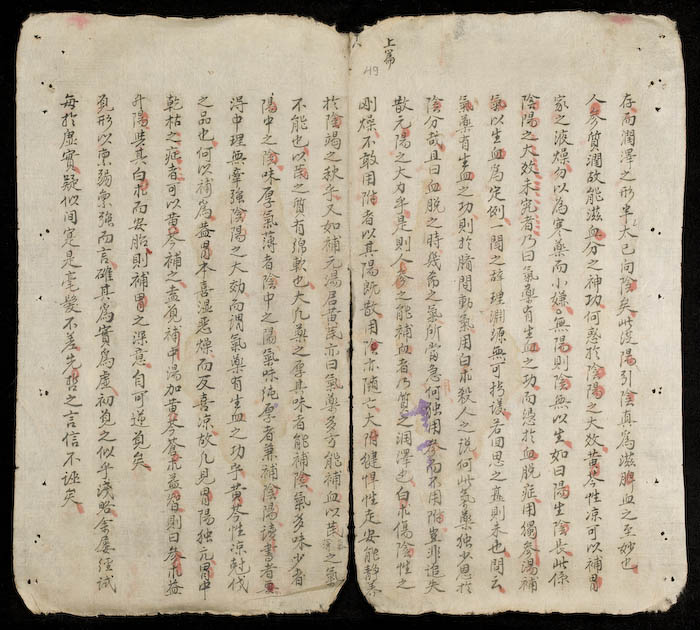 上篇
49
存而潤澤之形半大已向陰矣此後陽引陰真為滋脾血之至妙也
人參質潤故能滋血分之神功何惑於陰陽之大效黃芩性凉可以補胃
家之液燥勿以為寒藥而小嫌無陽則陰無以生如曰陽生陰長此係
陰陽之大效未完者乃曰氣藥有生血之功而憑於血脫症用獨參湯補
氣以生血為定例一問之辞理淵源無可拷議若回思之並則未也問云
氣藥有生血之功則於臍間動氣用白朮殺人之說何此氣藥独少恩於
陰分哉且曰血脫之時幾希之氣所當急何独用參而不用附豈非追失
散元陽之大力乎是則人參之能補血者乃質之潤澤也白朮傷陰性之
剛燥不敢用附者以其陽既散用陰亦隨亡大附健悍性走安能静養
於陰竭之秋乎又如補元湯君黃芪亦曰氣藥多方能補血以芪之氣
不能也以芪之質有綿軟也大凡藥之厚其味者能補陰氣多味少者
陽中之陰味厚氣薄者陰中之陽氣味純厚者兼補陰陽讀書者要
淂中理無牽強陰陽之大効而謂氣藥有生血之功乎黃芩性凉尅伐
之品也何以補為益胃本喜湿悪燥而反喜凉故凡見胃陽独亢胃中
乾枯之症者可以黃芩補之盍負補中湯加黃芩答朮益智則曰參朮益
升陽芪其白朮而安胎則補胃之深意自可逆負矣
負形以禀弱禀強而言確其為實為虛初負之似乎淺略余屡經試
每於虛實疑似间寔是毫髮不差先哲之言信不誣矣